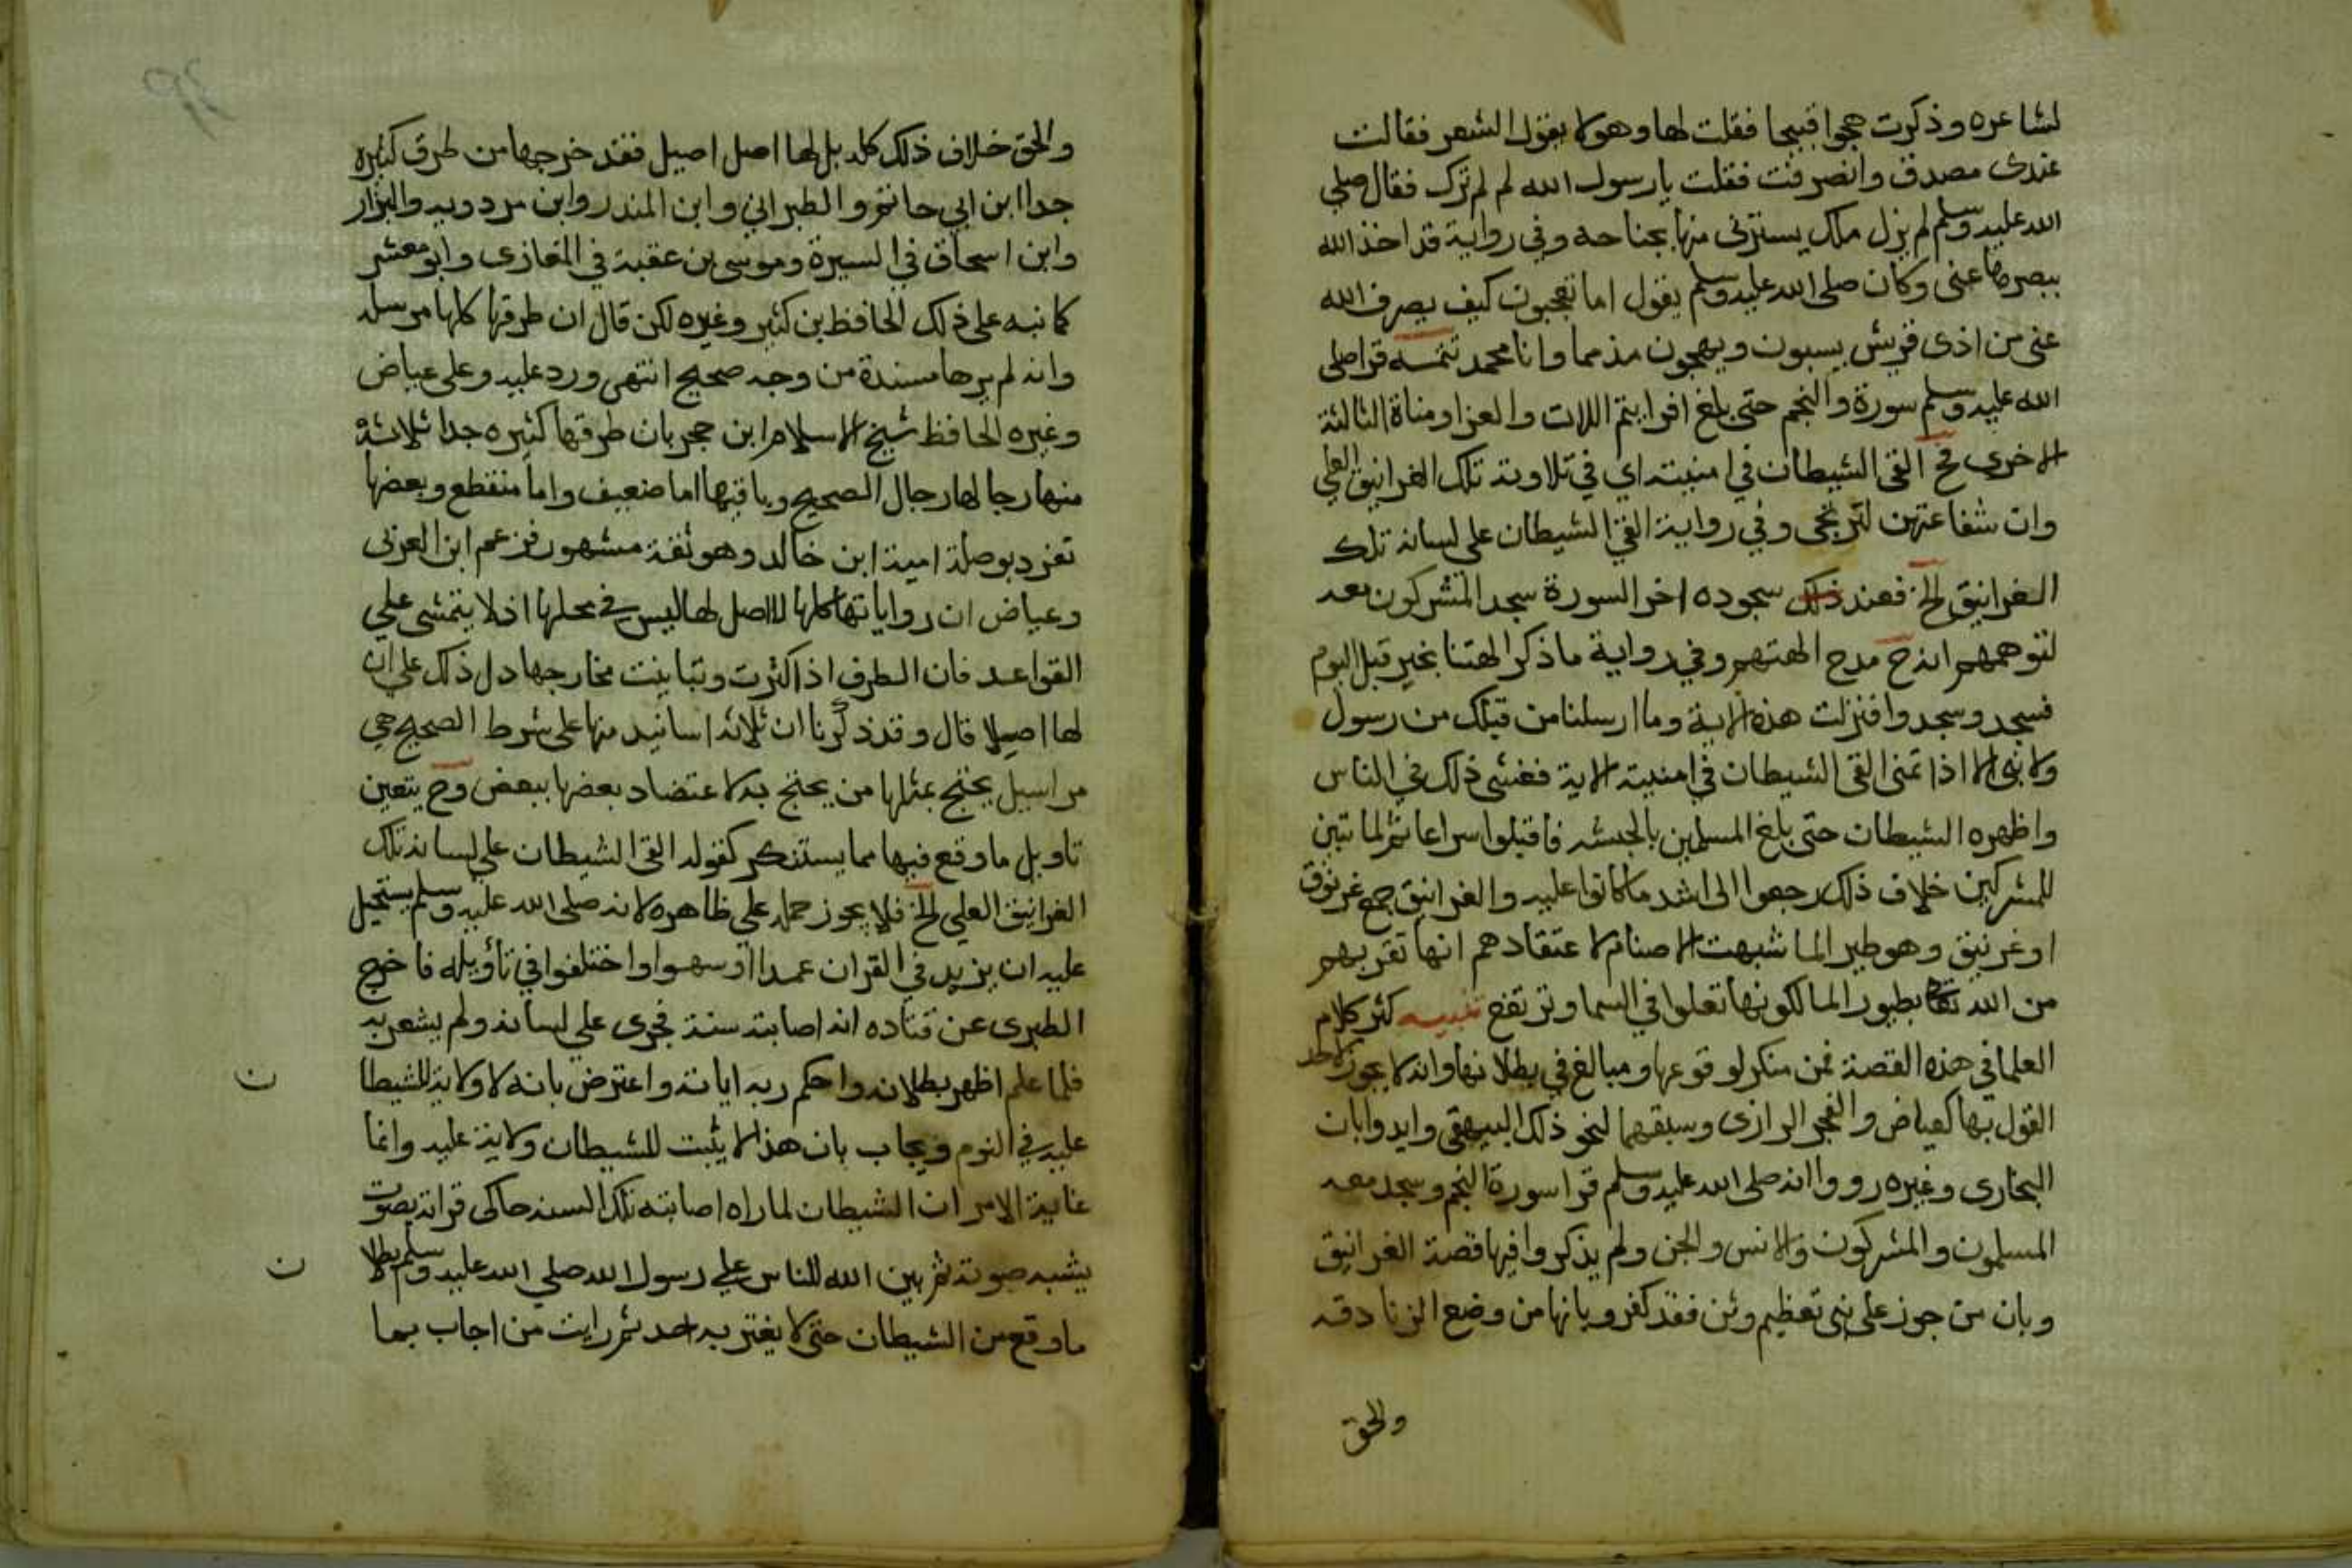 لشاعره وذكرت هجوا قبيحا فقلت لها وهو لا يقول الشعر فقالت
عندى مصدق وانصرفت فقلت يارسول الله لم لم ترك فقال صلي
الله عليه وسلم لم يزل ملك يسترنى منها بجناحه وفي رواية قد اخذ الله
ببصرها عنى وكان صلى الله عليه وسلم يقول اما تعجبون كيف يصرف الله
عنى من اذى قريش يسبون ويهجون مذمما وانا محمد تتمـه قرا صلى
الله عليه وسلم سورة والنجم حتى بلغ افرايتم اللات والعزا ومناة الثالثة
الاخرى فح القى الشيطان في امنيته اي في تلاوته تلك الغرانيق العلي
وان شفاعتهن لترتجى وفي رواية القى الشيطان على لسانه تلك
الغرانيق الخ فعند ذلك سجوده اخر السورة سجد المشركون معه
لتوهمهم انه ح مدح الهتهم وفي رواية ما ذكر الهتنا بخير قبل اليوم
فسجد وسجدوا فنزلت هذه الاية وما ارسلنا من قبلك من رسول
ولا نبى الا اذا تمنى القى الشيطان في امنيته الاية ففشى ذلك في الناس
واظهره الشيطان حتى بلغ المسلمين بالحبشه فاقبلوا سراعا ثم لما تبين
للمشركين خلاف ذلك رجعوا الى اشد ما كانوا عليه والغرانيق جمع غرنوق
او غرنيق وهو طير الما شبهت الاصنام لاعتقادهم انها تقربهم
من الله تعالى بطيور الما لكونها تعلوا في السما وترتفع تنبيـه كثر كلام
العلما في هذه القصة فمن منكر لوقوعها ومبالغ في بطلانها وانه لا يجوز لاحد
القول بها كعياض والفجر الرازى وسبقهما لنحو ذلك البيهقى وايدوا بان
البخارى وغيره رووا انه صلى الله عليه وسلم قرا سورة النجم وسجد معه
المسلمون والمشركون والانس والجن ولم يذكروا فيها قصة الغرانيق
وبان من جوز على نبى تعظيم وثن فقد كفر وبانها من وضع الزنادقه
والحق
والحق خلاف ذلك كله بل لها اصل اصيل فقد خرجها من طرق كثيره
جدا ابن ابي حاتم والطبراني وابن المنذر وابن مردويه والبزار
وابن اسحاق في السيرة وموسى بن عقبة في المغازى وابو معشر
كما نبه على ذلك الحافظ بن كثير وغيره لكن قال ان طرقها كلها مرسله
وانه لم يرها مسندة من وجه صحيح انتهى ورد عليه وعلى عياض
وغيره الحافظ شيخ الاسلام ابن حجر بان طرقها كثيره جدا ثلاثة
منها رجالها رجال الصحيح وباقيها اما ضعيف واما منقطع وبعضها
تفرد بوصله امية ابن خالد وهو ثقة مشهور فزعم ابن العربى
وعياض ان رواياتها كلها لا اصل لها ليس في محلها اذ لا يتمشى علي
القواعد فان الطرق اذا كثرت وتباينت مخارجها دل ذلك على ان
لها اصيلا قال وقد ذكرنا ان ثلاثه اسانيد منها على شرط الصحيح هي
مراسيل يحتج بمثلها من يحتج به لاعتضاد بعضها ببعض وح يتعين
تاويل ما وقع فيها مما يستنكر كقوله القى الشيطان علي لسانه تلك
الغرانيق العلي الخ فلا يجوز حمله علي ظاهره لانه صلى الله عليه وسلم يستحيل
عليه ان يزيد في القران عمدا او سهوا واختلفوا في تأويله فاخرج
الطبرى عن قتاده انه اصابته سنة فجرى علي لسانه ولم يشعر به
فلما علم اظهر بطلانه واحكم ربه اياته واعترض بانه لا ولاية للشيطا ن
عليه في النوم ويجاب بان هذا لا يثبت للشيطان ولاية عليه وانما
غاية الامر ان الشيطان لما راه اصابته تلك السنه حاكى قراته بصوت
يشبه صوته ثم بين الله للناس علي رسول الله صلي الله عليه وسلم بطلا ن
ما وقع من الشيطان حتى لا يغتر به احد ثم رايت من اجاب بما